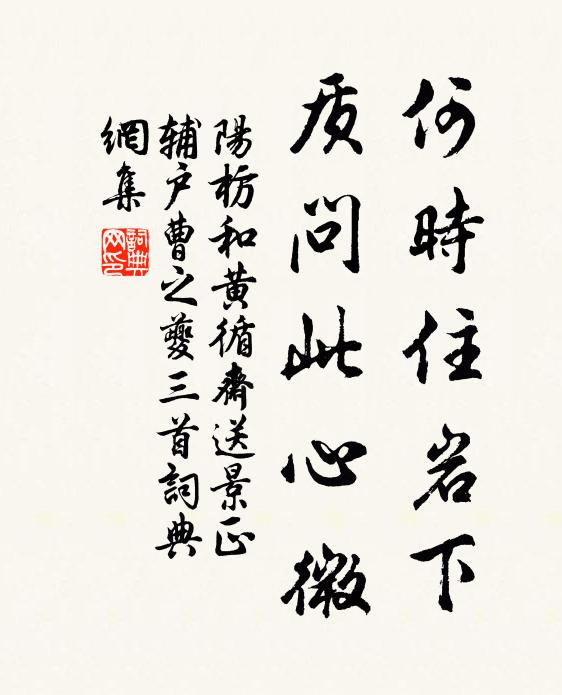 何時住岩下
质問此心微
陽枋和黄循齋送景正
輔户曹之夔三首詞典
網集
詞典网印